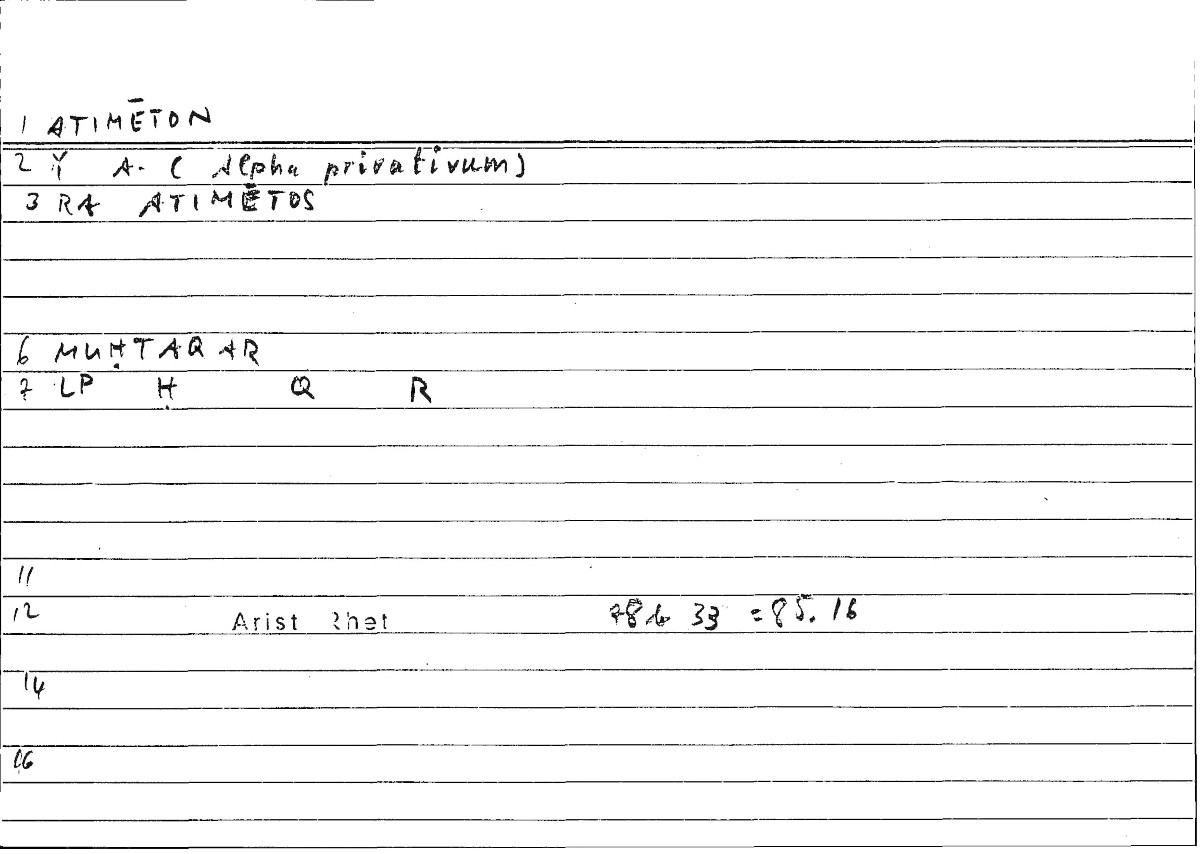 1 ATIMĒTON
2 Y A- ( Alpha privativum)
3 RA ATIMĒTOS
6 MUḤTAQAR
7 LP Ḥ Q R
11
12 Arist Rhet 78b 33 = 85.16
14
16